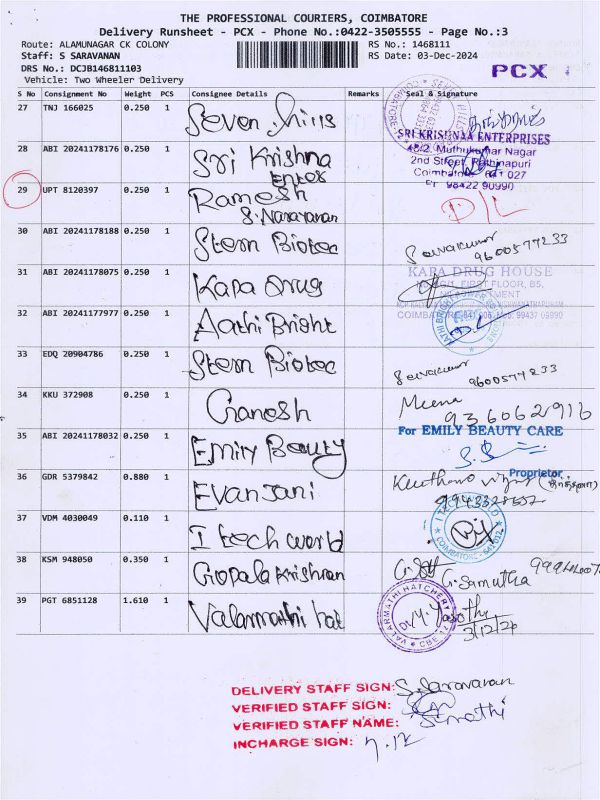 THE PROFESSIONAL COURIERS, COIMBATORE
Delivery Runsheet - PCX - Phone No.:0422-3505555 - Page No.:3
Route: ALAMUNAGAR CK COLONY RS No.: 1468111
Staff: S SARAVANAN RS Date: 03-Dec-2024
DRS No.: DCJB146811103
Vehicle: Two Wheeler Delivery
PCX
S No Consignment No Weight PCS Consignee Details Remarks Seal & Signature
27 TNJ 166025 0.250 1 Seven hills
28 ABI 20241178176 0.250 1 Sri Krishna Enter
SRI KRISHNAA ENTERPRISES
48/2, Muthukumar Nagar
2nd Street, Rathinapuri
Coimbatore 641 027
98422 90990
29 UPT 8120397 0.250 1 Ramesh
S. Narayanan
D/L
30 ABI 20241178188 0.250 1 Stem Biotec
9600577233
31 ABI 20241178075 0.250 1 Kapa Drug
KAPA DRUG HOUSE
FIRST FLOOR, B5,
99437 09990
32 ABI 20241177977 0.250 1 Aathi Bright
D.L
33 EDQ 20904786 0.250 1 Stem Biotec
9600577233
34 KKU 372908 0.250 1 Ganesh
Meena
9360621916
35 ABI 20241178032 0.250 1 Emily Beauty
For EMILY BEAUTY CARE
Proprietor
36 GDR 5379842 0.880 1 Evanjani
37 VDM 4030049 0.110 1 I tech world
I TECH WORLD
COIMBATORE - 641 012
38 KSM 948050 0.350 1 Gopala Krishnan
G. Samutha
39 PGT 6851128 1.610 1 Valarmathi hat
VALARMATHI HATCHERY
CBE 12
3/12/24
DELIVERY STAFF SIGN: S. Saravanan
VERIFIED STAFF SIGN:
VERIFIED STAFF NAME: Sumathi
INCHARGE SIGN: